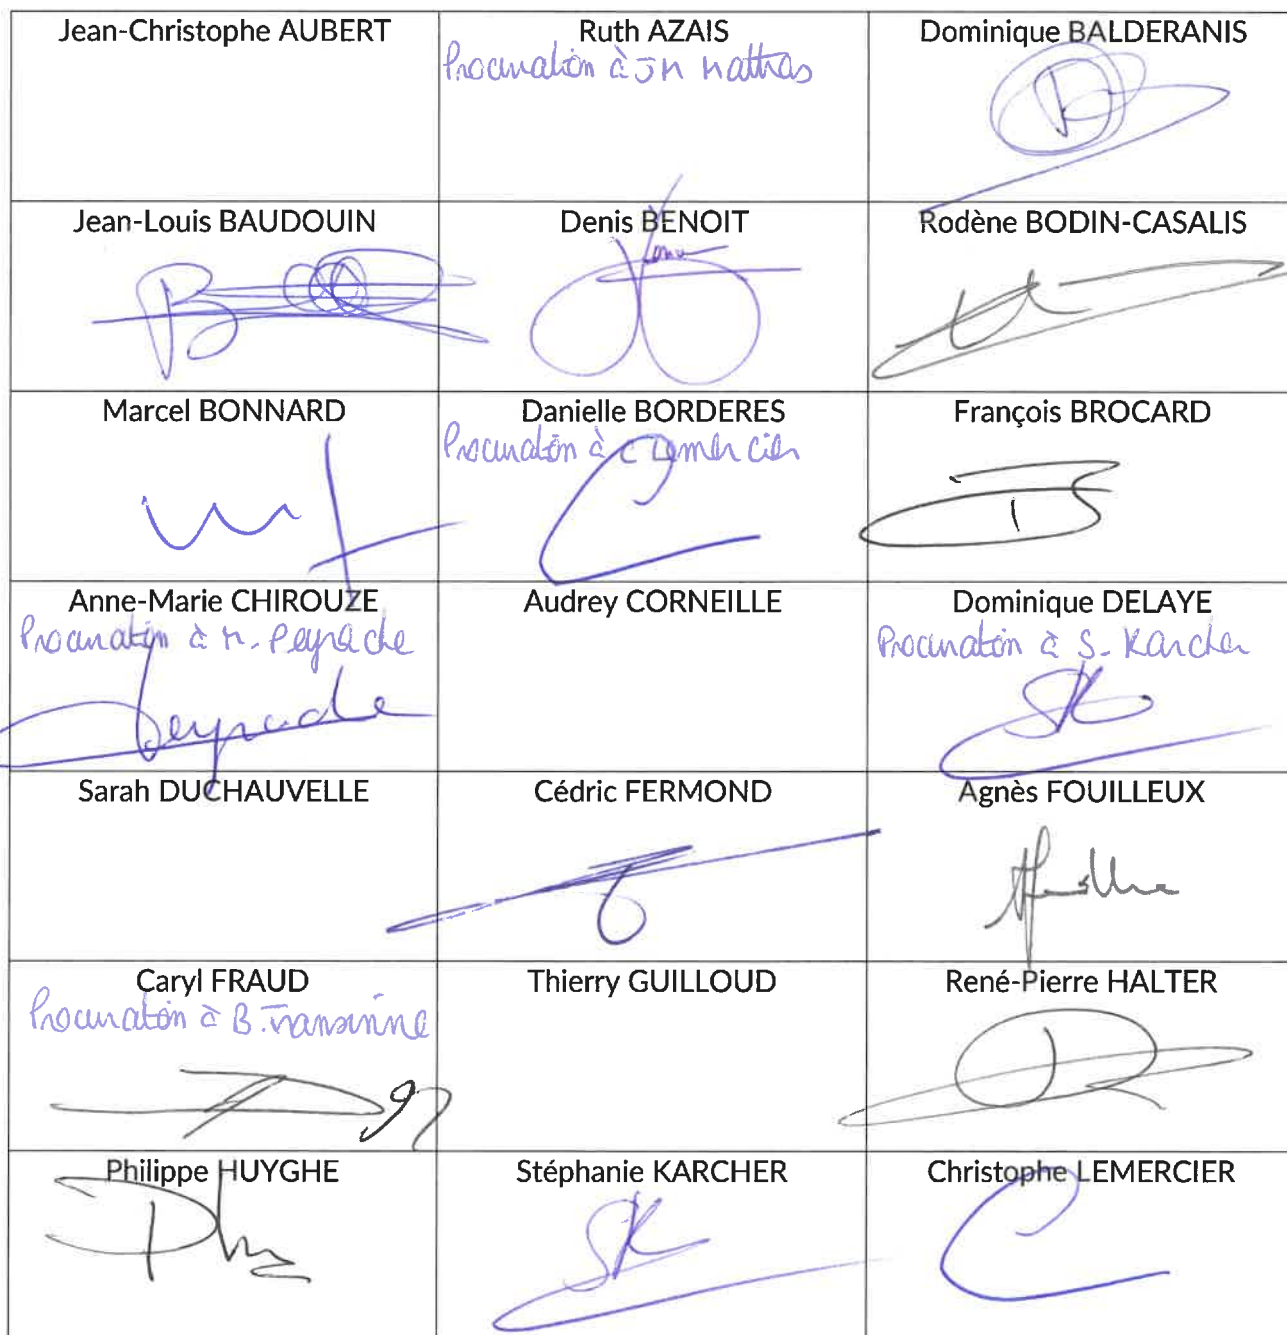 Jean-Christophe AUBERT
Ruth AZAIS
Procuration à JM Mattras
Dominique BALDERANIS
Jean-Louis BAUDOUIN
Denis BENOIT
Rodène BODIN-CASALIS
Marcel BONNARD
Danielle BORDERES
Procuration à C Lemercier
François BROCARD
Anne-Marie CHIROUZE
Procuration à M. Peyrache
Peyrache
Audrey CORNEILLE
Dominique DELAYE
Procuration à S. Karcher
SK
Sarah DUCHAUVELLE
Cédric FERMOND
Agnès FOUILLEUX
Caryl FRAUD
Procuration à B. Transinne
Thierry GUILLOUD
René-Pierre HALTER
Philippe HUYGHE
Stéphanie KARCHER
SK
Christophe LEMERCIER